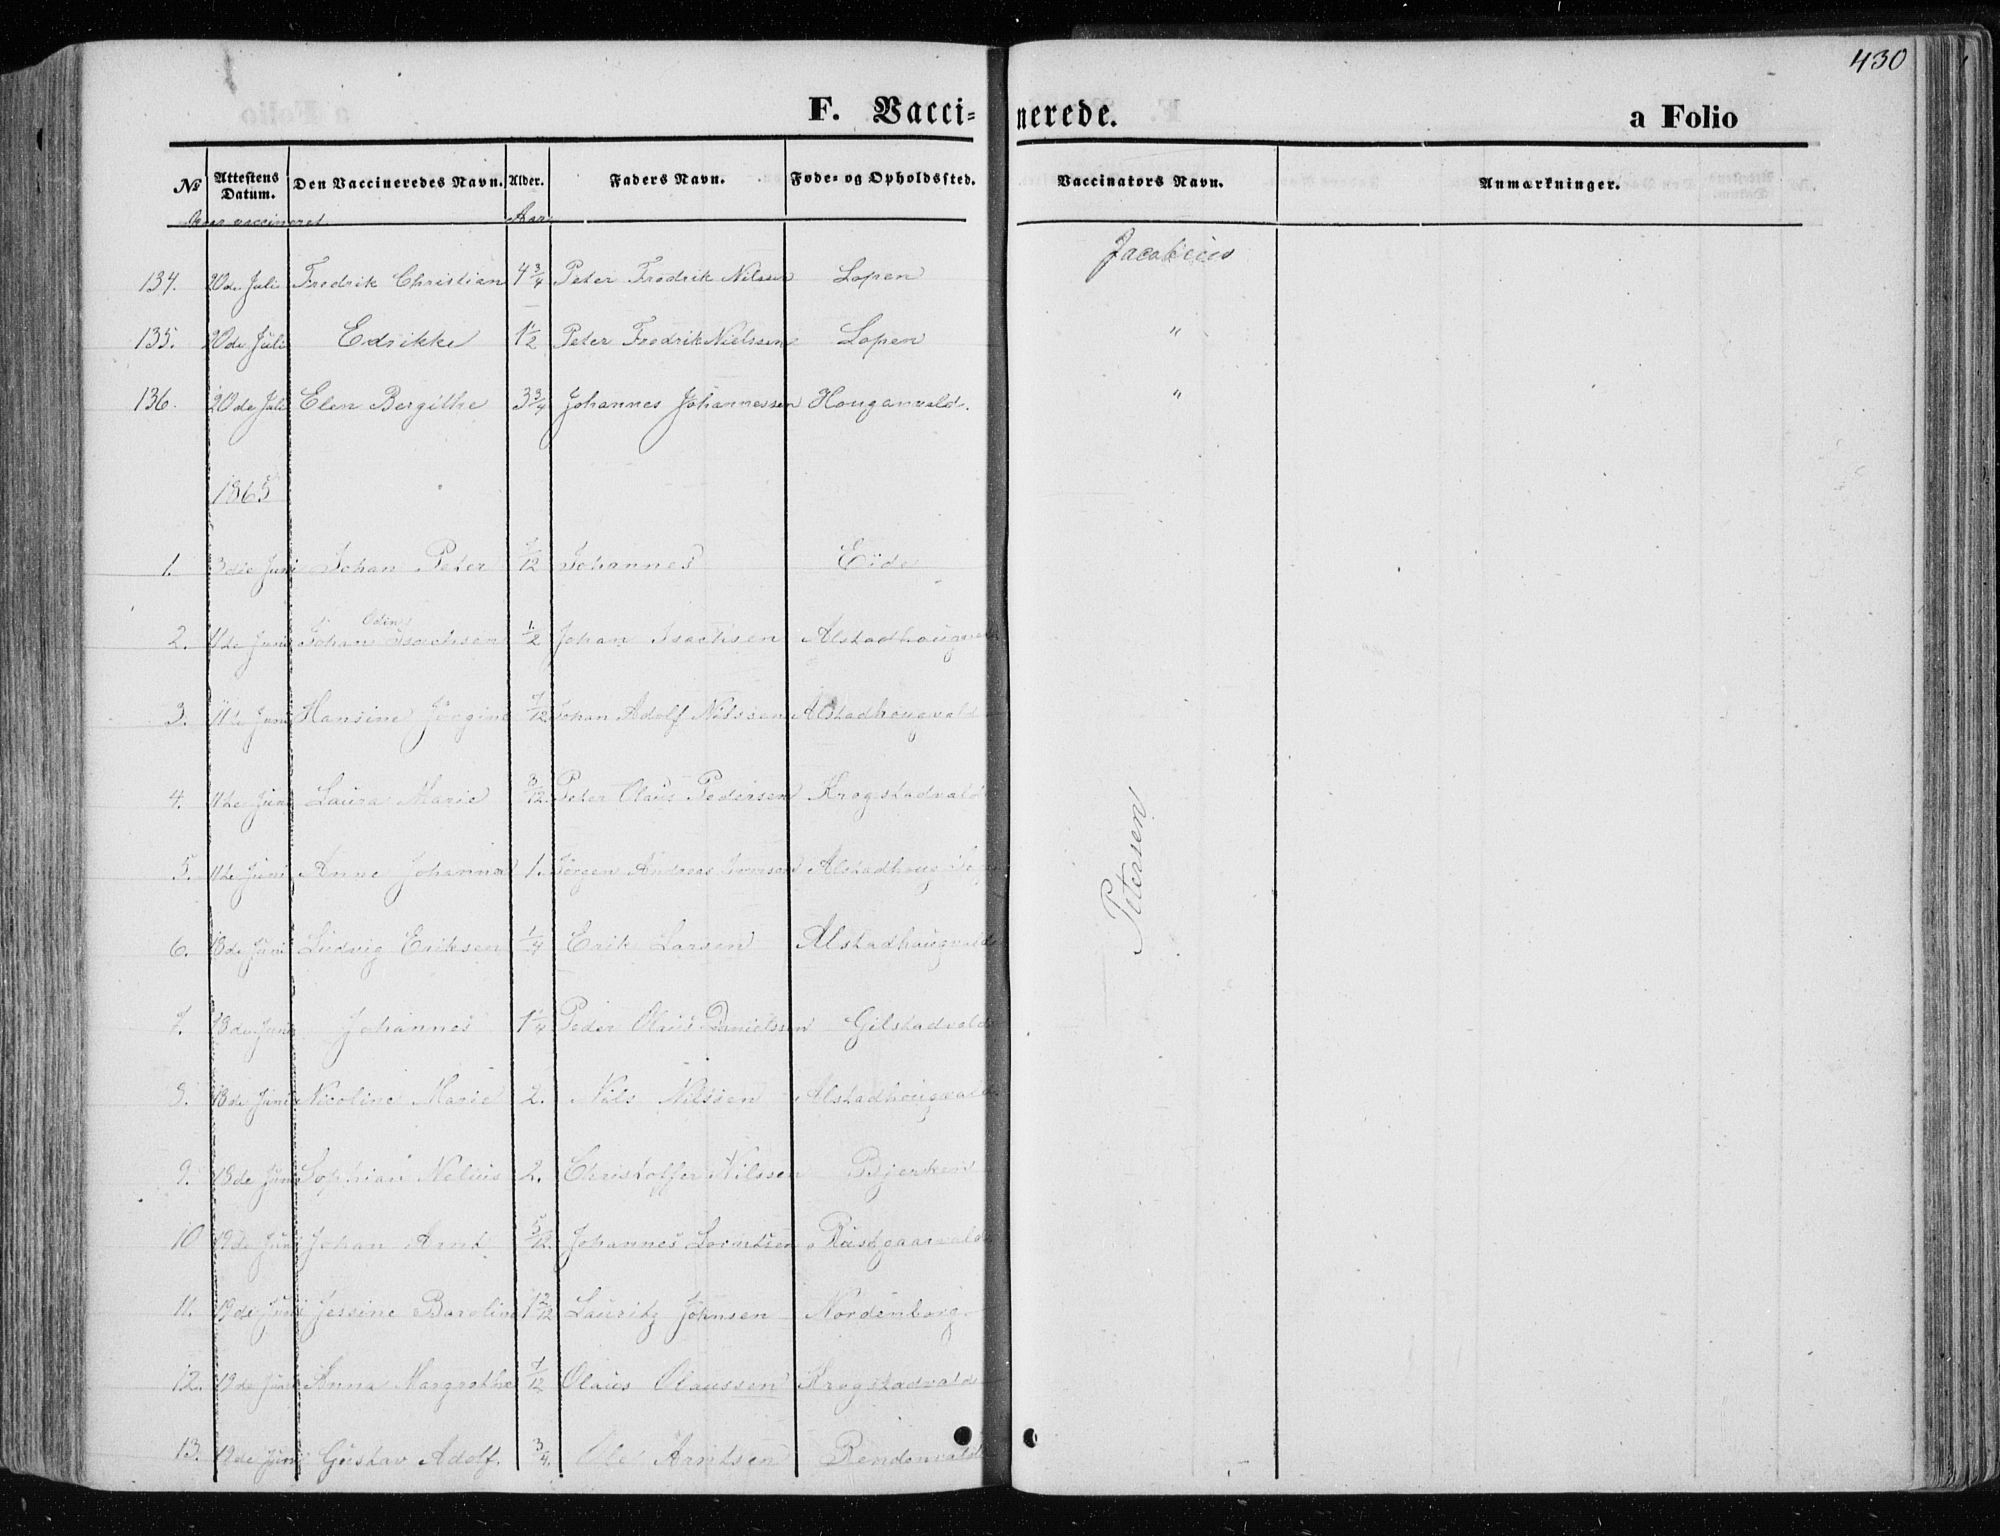 430
F. Vaccinerede. a Folio
No Attestens Datum. Den Vaccineredes Navn. Alder. Faders Navn. Føde- og Opholdssted. Vaccinators Navn. Anmærkninger.
vaccineret Aar
134. 20de Juli Fredrik Christian 4 3/4 Peter Fredrik Nilssen Lopen Jacobæus
135. 20de Juli Edrikke 1 1/2 Peter Fredrik Nielssen Lopen "
136. 20de Juli Elen Bergithe 3 3/4 Johannes Johannessen Houganvald. "
1865
1. 3die Juni Johan Peter 7/12 Johannes Eide
2. 11te Juni Johan Odin Isachsen 1/2 Johan Isachsen Alstadhougvald
3. 11te Juni Hansine Jörgine 7/12 Johan Adolf Nilssen Alstadhougvald
4. 11te Juni Laura Marie 8/12 Peter Olaus Pedersen Krogstadvald
5. 11te Juni Anne Johanna 1. Jörgen Andreas Iversen Alstadhoug
6. 13de Juni Ludvig Eriksen 1/4 Erik Larsen Alstadhaugvald
7. 13de Juni Johannes 1 1/4 Peder Olaus Danielssen Gilstadvald
8. 13de Juni Nicoline Marie 2. Nils Nilssen Alstadhougvald
9. 13de Juni Sophian Nelius 2. Christoffer Nilssen Bjerken
10 19de Juni Johan Arnt 5/12. Johannes Lorntsen Rustgaarvald
11. 19de Juni Jessine Baroline 1 2/12 Lauritz Johnsen Nordenborg
12. 19de Juni Anna Margrethe 7/12 Olaus Olaussen Krogstadvald
13. 19de Juni Gustav Adolf. 3/4. Ole Arntsen Rendenvald
Petersen